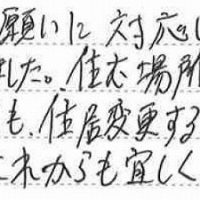 願いに対応し
ました。住む場所
も、住居変更する
これからも宜しく